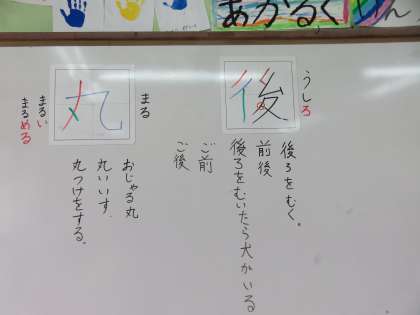 あかるく
うしろ
後
後ろをむく。
前後
後ろをむいたら犬がいる
ご前
ご後
まる
丸
まるい
まるめる
おじゃる丸
丸いいす
丸つけをする。